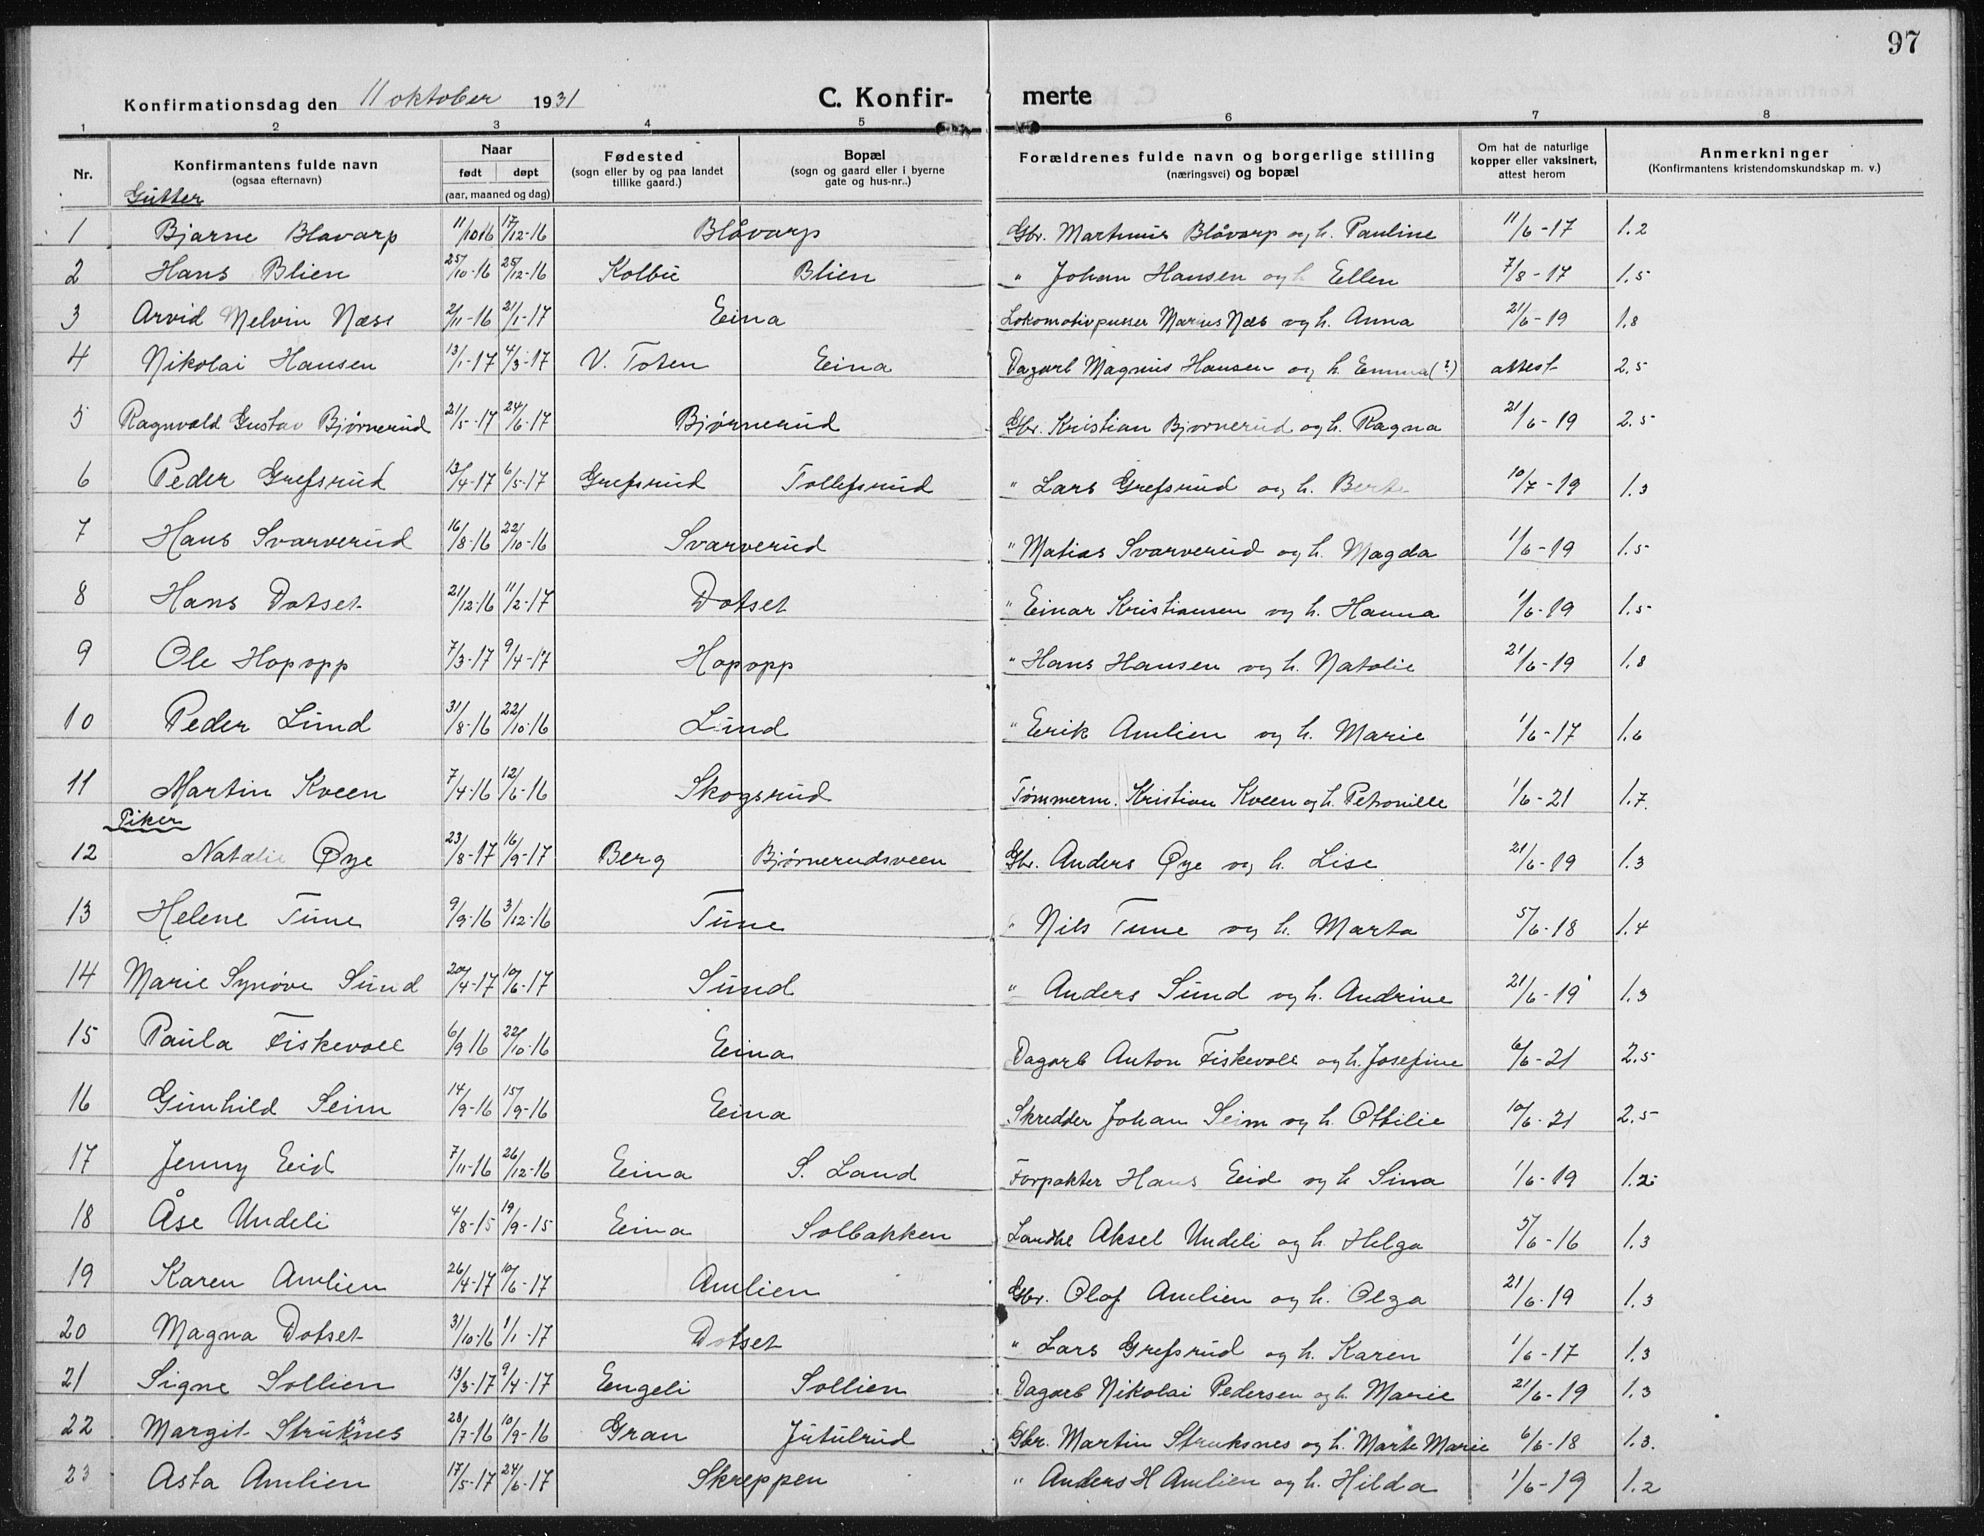 97
Konfirmationsdag den 11 oktober 1931 C. Konfir- merte
1 2 3 4 5 6 7 8
Nr. Konfirmantens fulde navn (ogsaa efternavn) Naar født døpt (aar, maaned og dag) Fødested (sogn eller by og paa landet tillike gaard.) Bopæl (sogn og gaard eller i byerne gate og hus-nr..) Forældrenes fulde navn og borgerlige stilling (næringsvei) og bopæl Om hat de naturlige kopper eller vaksinert, attest herom Anmerkninger (Konfirmantens kristendomskundskap m. v.)
Gutter
1 Bjarne Blåvarp 11/10 16 17/12-16 Blåvarp Gbr. Martinus Blåvarp og h. Pauline 11/6-17 1.2
2 Hans Blien 25/10-16 25/12-16 Kolbu Blien " Johan Hansen og h Ellen 7/8-17 1.5
3 Arvid Melvin Næss 2/11-16 21/1-17 Eina Lokomotivpusser Marius Næs og h. Anna 21/6-19 1.8
4 Nikolai Hansen 13/1-17 4/3-17 V. Toten Eina Dagarb Magnus Hansen og h. Emma (?) attest 2.5
5 Ragnvald Gustav Bjørnerud 21/5-17 24/6-17 Bjørnerud Gbr. Kristian Bjørnerud og h. Ragna 21/6-19 2.5
6 Peder Grefsrud 13/4-17 6/5-17 Grefsrud Tollefsrud " Lars Grefsrud og h. Berte 10/7-19 1.3
7 Hans Svarverud 16/8-16 22/10-16 Svarverud " Matias Svarverud og h. Magda 1/6-19 1.5
8 Hans Dotset 21/12-16 11/2-17 Dotset " Einar Kristiansen og h. Hanna 1/6-19 1.5
9 Ole Hopopp 7/3-17 9/4-17 Hopopp " Hans Hansen og h. Natalie 21/6-19 1.8
10 Peder Lund 31/8-16 22/10-16 Lund " Erik Amlien og h. Marie 1/6-17 1.6
11 Martin Kveen 7/4-16 12/6-16 Skogsrud Tømmerm. Kristian Kveen og h. Petronille 1/6-21 1.7.
Piker
12 Natalie Øye 23/8-17 16/9-17 Berg Bjørnerudsveen Gbr. Anders Øye og h. Lise 21/6-19 1.3
13 Helene Tune 9/9-16 3/12-16 Tune " Nils Tune og h. Marta 5/6-18 1.4
14 Marie Synøve Sund 20/4-17 10/6-17 Sund " Anders Sund og h. Andrine 21/6-19 1.3
15 Paula Fiskevoll 6/9 16 22/10-16 Eina Dagarb Anton Fiskevoll og h. Josefine 6/6-21 2.5
16 Gunhild Seim 14/9-16 15/9-16 Eina Skredder Johan Seim og h. Ottilie 10/6-21 2.5
17 Jenny Eid 7/11-16 26/12-16 Eina S. Land Forpakter Hans Eid og h Sina 1/6-19 1.2
18 Åse Undeli 4/8-15 19/9-15 Eina Solbakken Landhl Aksel Undeli og h. Helga 5/6-16 1.3
19 Karen Amlien 26/4-17 10/6-17 Amlien Gbr. Olaf Amlien og h. Olga 21/6-19 1.3
20 Magna Dotset 31/10-16 1/1-17 Dotset " Lars Grefsrud og h. Karen 1/6-17 1.3
21 Signe Sollien 13/3-17 9/4-17 Engeli Sollien Dagarb Nikolai Pedersen og h. Marie 21/6-19 1.3
22 Margit Struksnes 28/7-16 10/9-16 Gran Jutulrud Gbr. Martin Struksnes og h. Marte Marie 6/6-18 1.3.
23 Asta Amlien 17/5-17 24/6-17 Skreppen " Anders H Amlien og h. Hilda 1/6-19 1.2